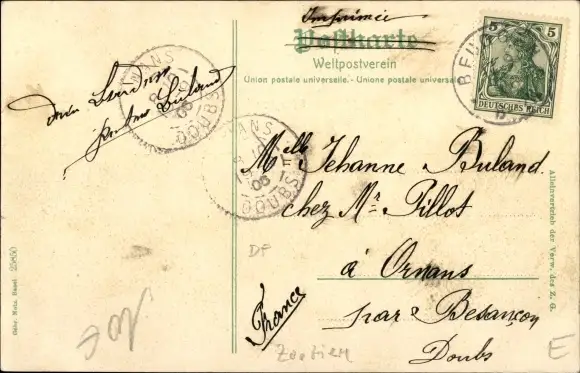 Imprimée
Postkarte
Weltpostverein
Union postale universelle. - Unione postale universale
5 5
DEUTSCHES REICH
BE
ORNANS
DOUBS
06
ORNANS
DOUBS
06
Buland
Melle Jehanne Buland.
chez Mr Pillot
à Ornans
par Besançon
Doubs
France
DF
E
Alleinvertrieb der Verw. des Z. G.
Gebr. Metz, Basel. 25850